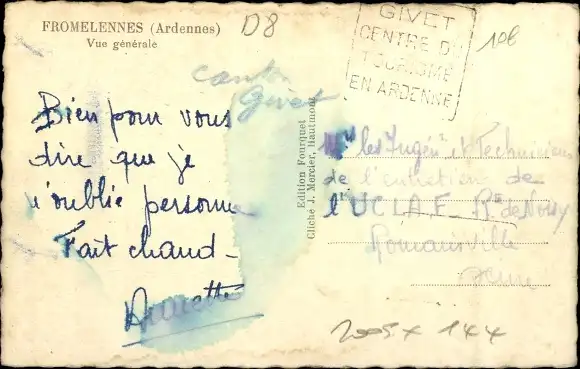 FROMELENNES (Ardennes)
Vue générale
D8
GIVET
CENTRE DU
TOURISME
EN ARDENNE
106
canton
Givet
Bien pour vous
dire que je
n'oublie personne
Fait chaud -
Annette
Edition Fourquet
Cliché J. Mercier, Hautmont
Mrs les Ingén et Techniciens
de l'entretien de
l'UCLAF Rte de Noisy
Romainville
Seine
2005 x 144